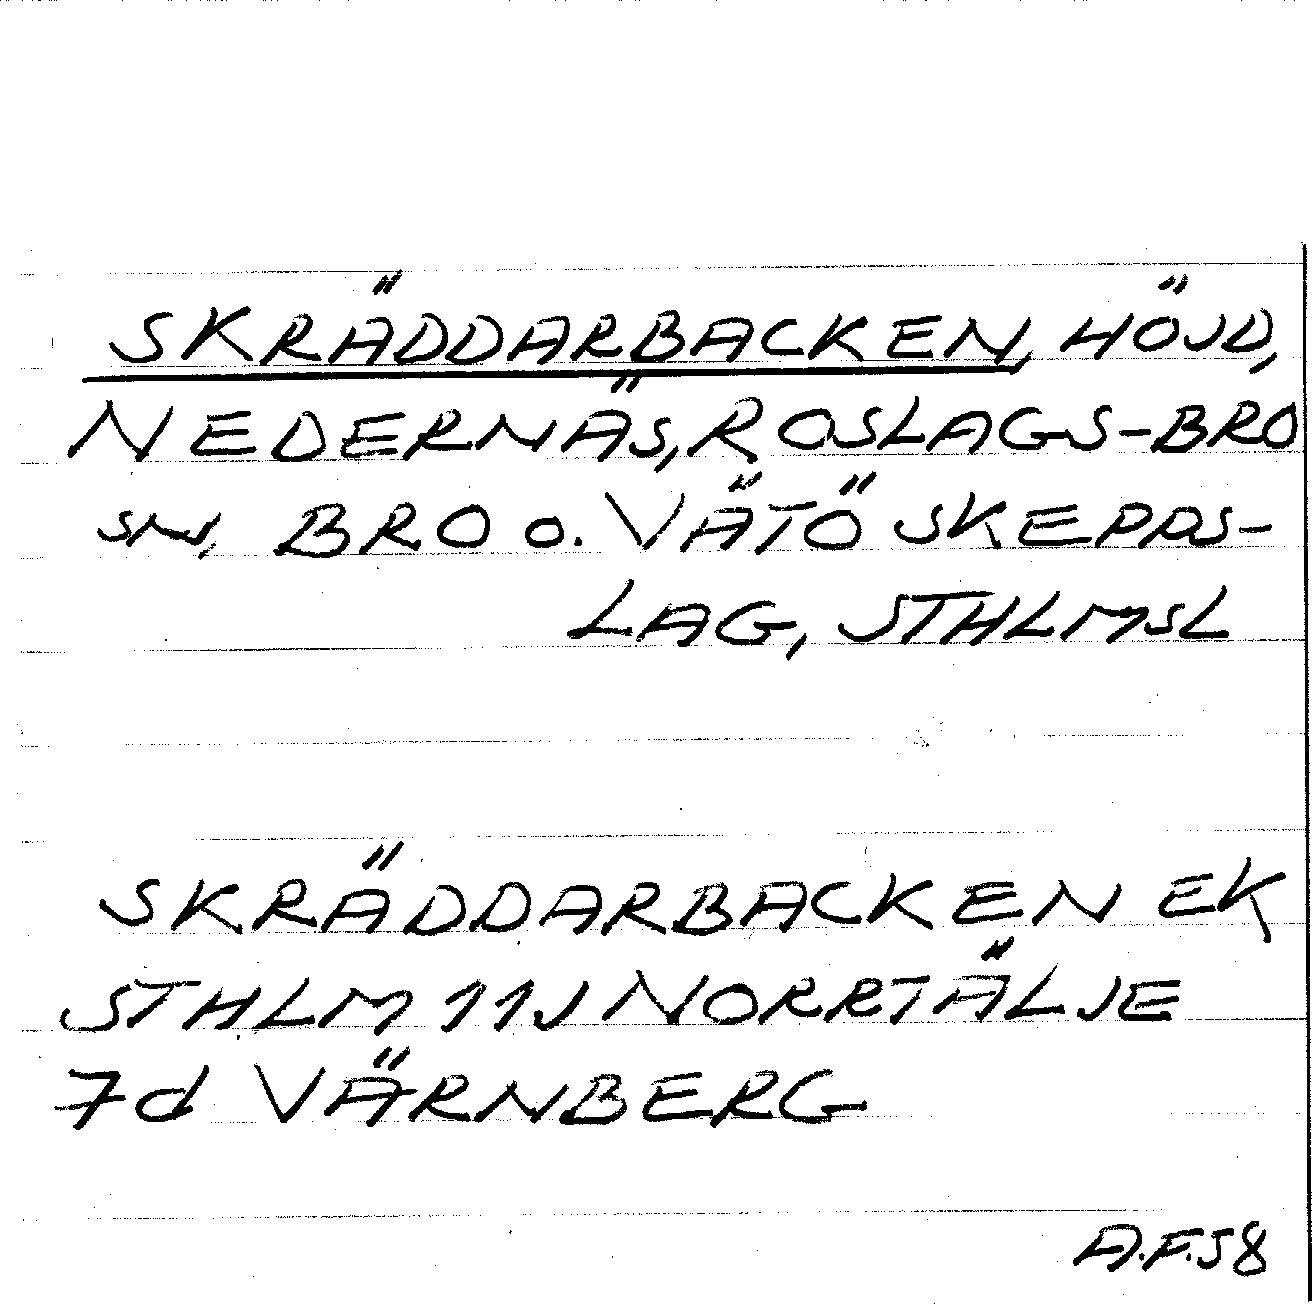 SKRÄDDARBACKEN, HÖJD,
NEDERNÄS, ROSLAGS-BRO
SN, BRO O. VÄTÖ SKEPPS-
LAG, STHLMSL
SKRÄDDARBACKEN EK
STHLM 11J NORRTÄLJE
7d VÄRNBERG
A.F.58